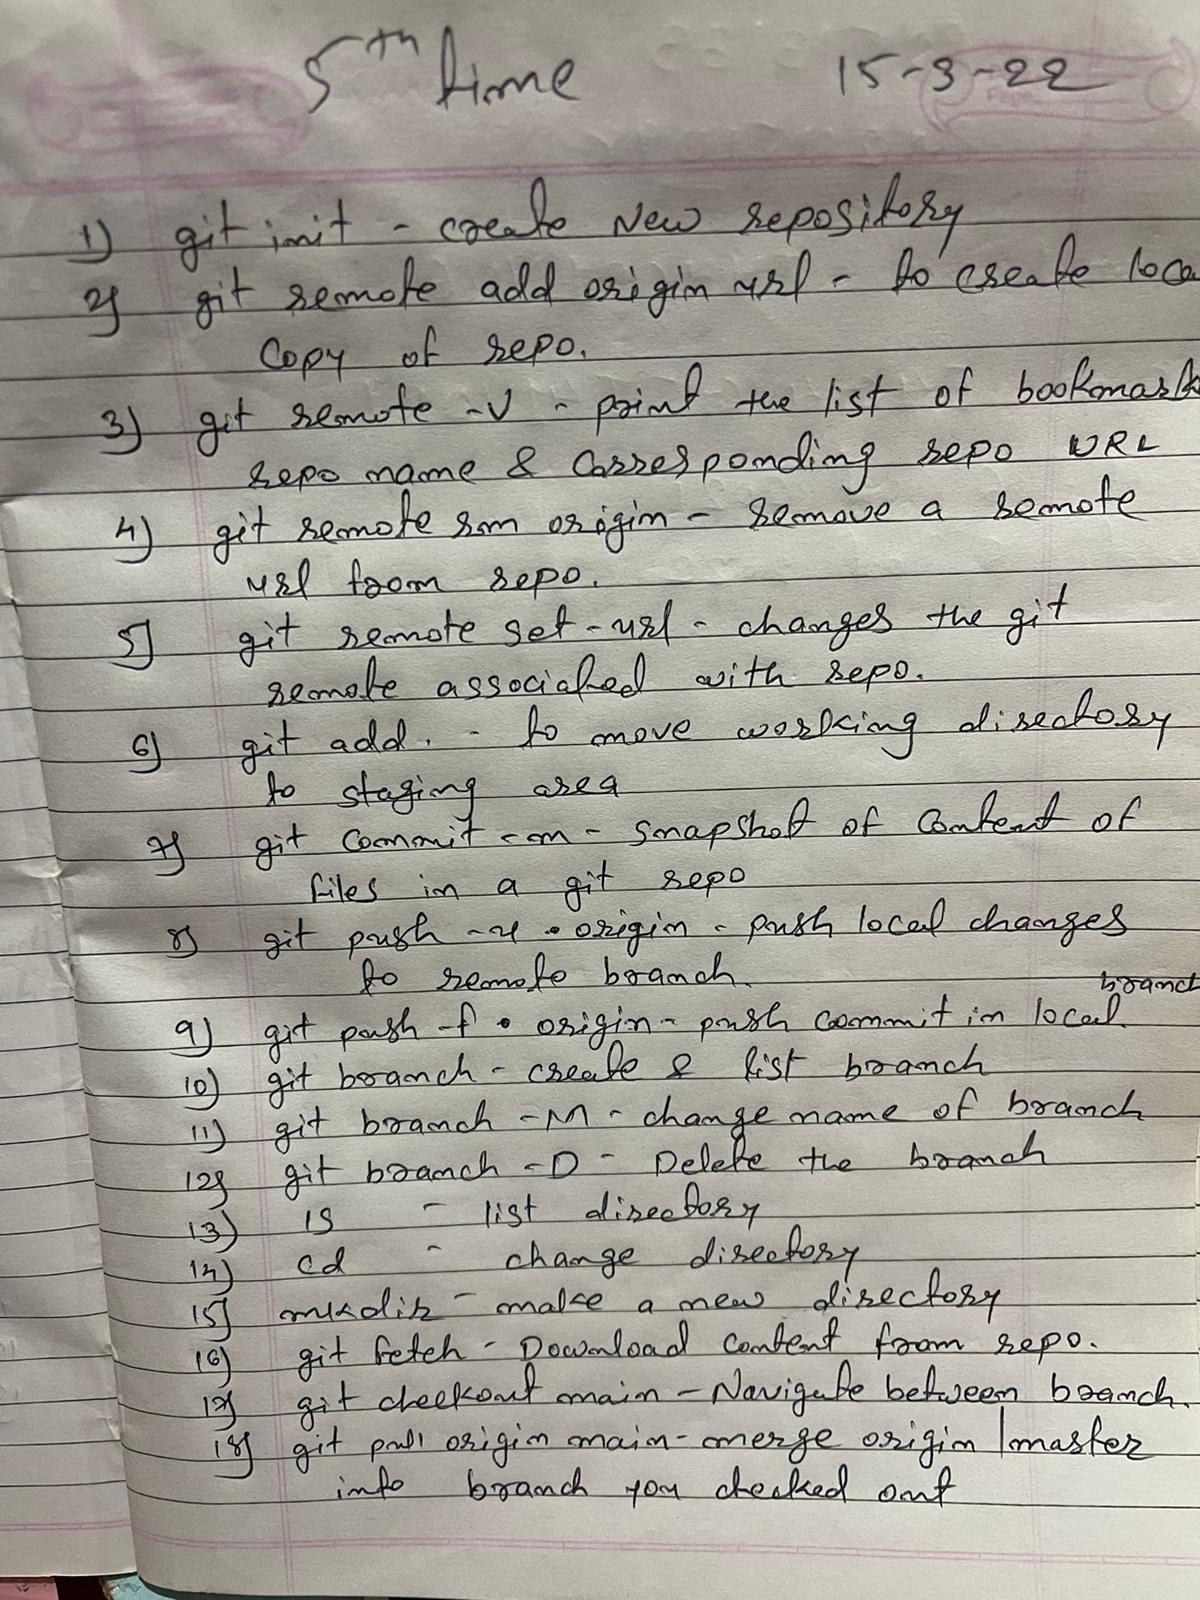 5th time 15-3-22
1) git init - create New repository
2) git remote add origin url - to create loca
Copy of repo.
3) git remote -v - print the list of bookmark
repo name & Corresponding repo URL
4) git remote rm origin - remove a remote
url from repo.
5) git remote set-url - changes the git
remote associated with repo.
6) git add . - to move working directory
to staging area
7) git commit -m - snapshot of Content of
files in a git repo
8) git push -u origin - push local changes
to remote branch.
branch
9) git push -f origin - push commit in local
10) git branch - create & list branch
11) git branch -M - change name of branch
12) git branch -D - Delete the branch
13) ls - list directory
14) cd - change directory
15) mkdir - make a new directory
16) git fetch - Download content from repo.
17) git checkout main - Navigate between branch.
18) git pull origin main - merge origin/master
into branch you checked out